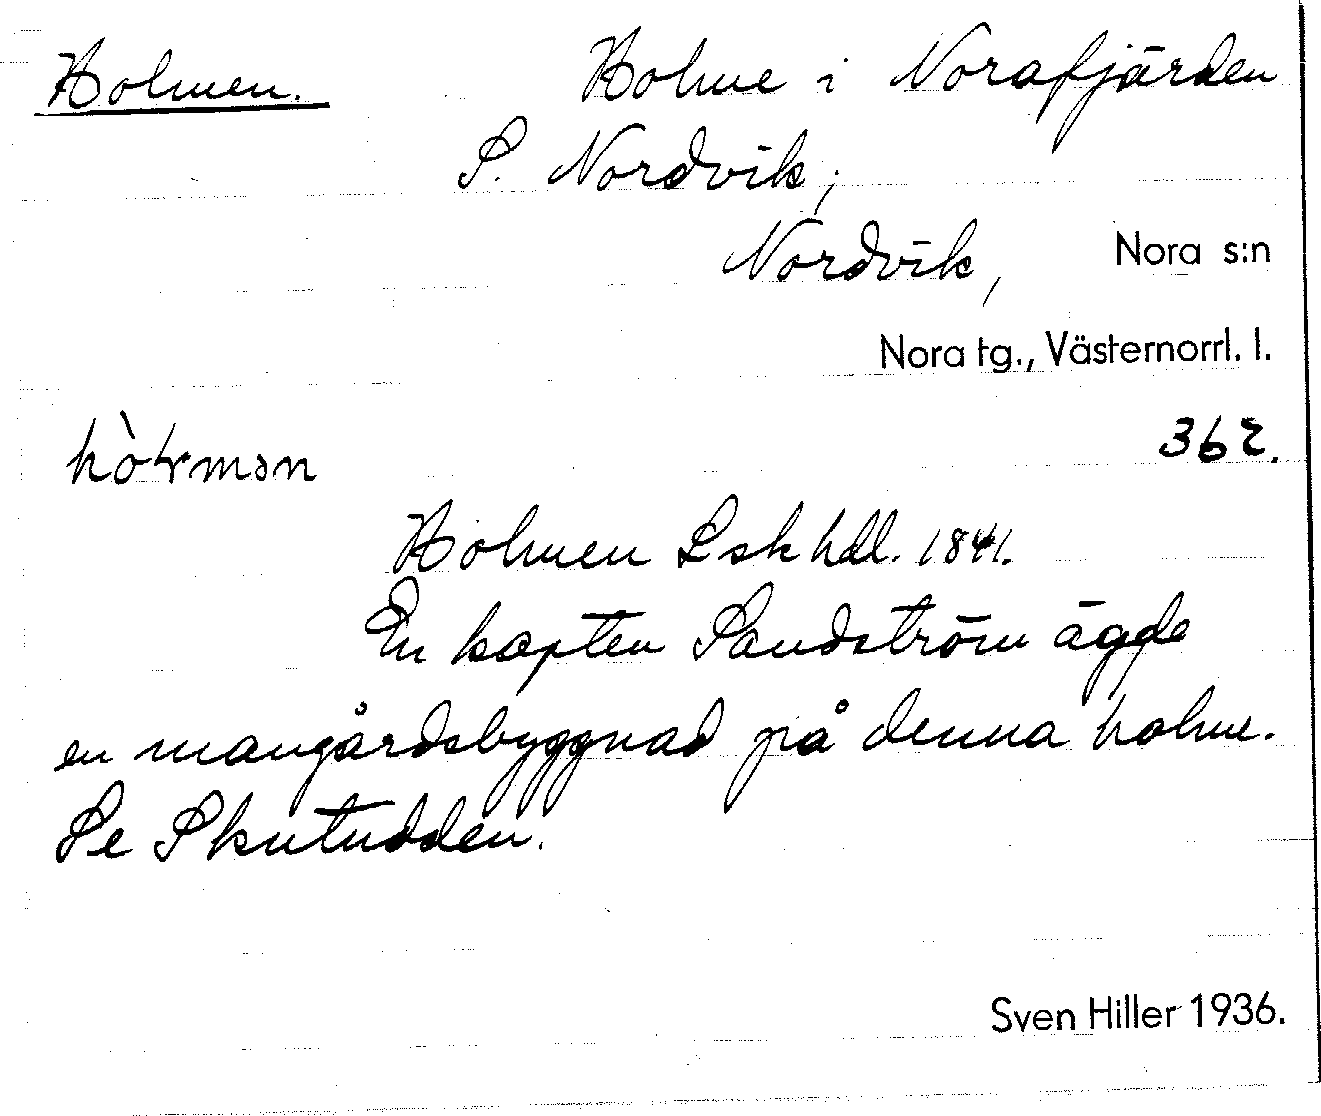 Holmen. Holme i Norafjärden
S. Nordvik;
Nordvik, Nora s:n
Nora tg., Västernorrl. l.
362.
Holmen Lskhdl. 1841.
En kapten Sandström ägde
en mangårdsbyggnad på denna holme.
Se Skutudden.
Sven Hiller 1936.